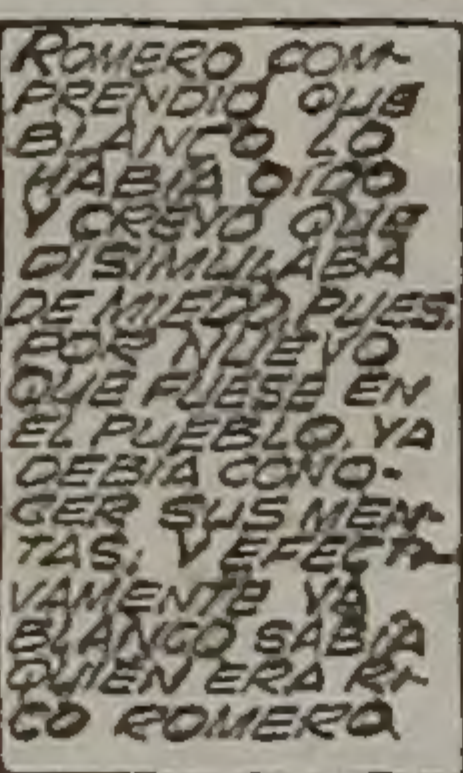 ROMERO COM-
PRENDIO QUE
BLANCO LO
HABIA OIDO
Y CREYO QUE
DISIMULABA
DE MIEDO, PUES,
POR NUEVO
QUE FUESE EN
EL PUEBLO, YA
DEBIA CONO-
CER SUS MEN-
TAS; Y EFECTI-
VAMENTE YA
BLANCO SABIA
QUIEN ERA RI-
CO ROMERO